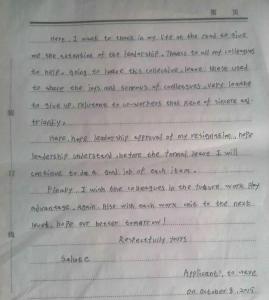 Here, I want to thank in my life on the road to give
me the attention of the leadership. Thanks to all my colleagues
to help. going to leave this collective, leave those used
to share the joys and sorrows of colleagues. very loathe
to give up, reluctant to co-workers that kind of sincere
Here, hope leadership approval of my resignation, hope
leadership understand, before the formal leave I will
continue to do a good job of each item.
Finally, I wish the colleagues in the future work play
advantage, again, Rise with each work unit to the next
level, hope our better tomorrow!
Respectfully yours
Salute
Applicant:
on October 8, 2015